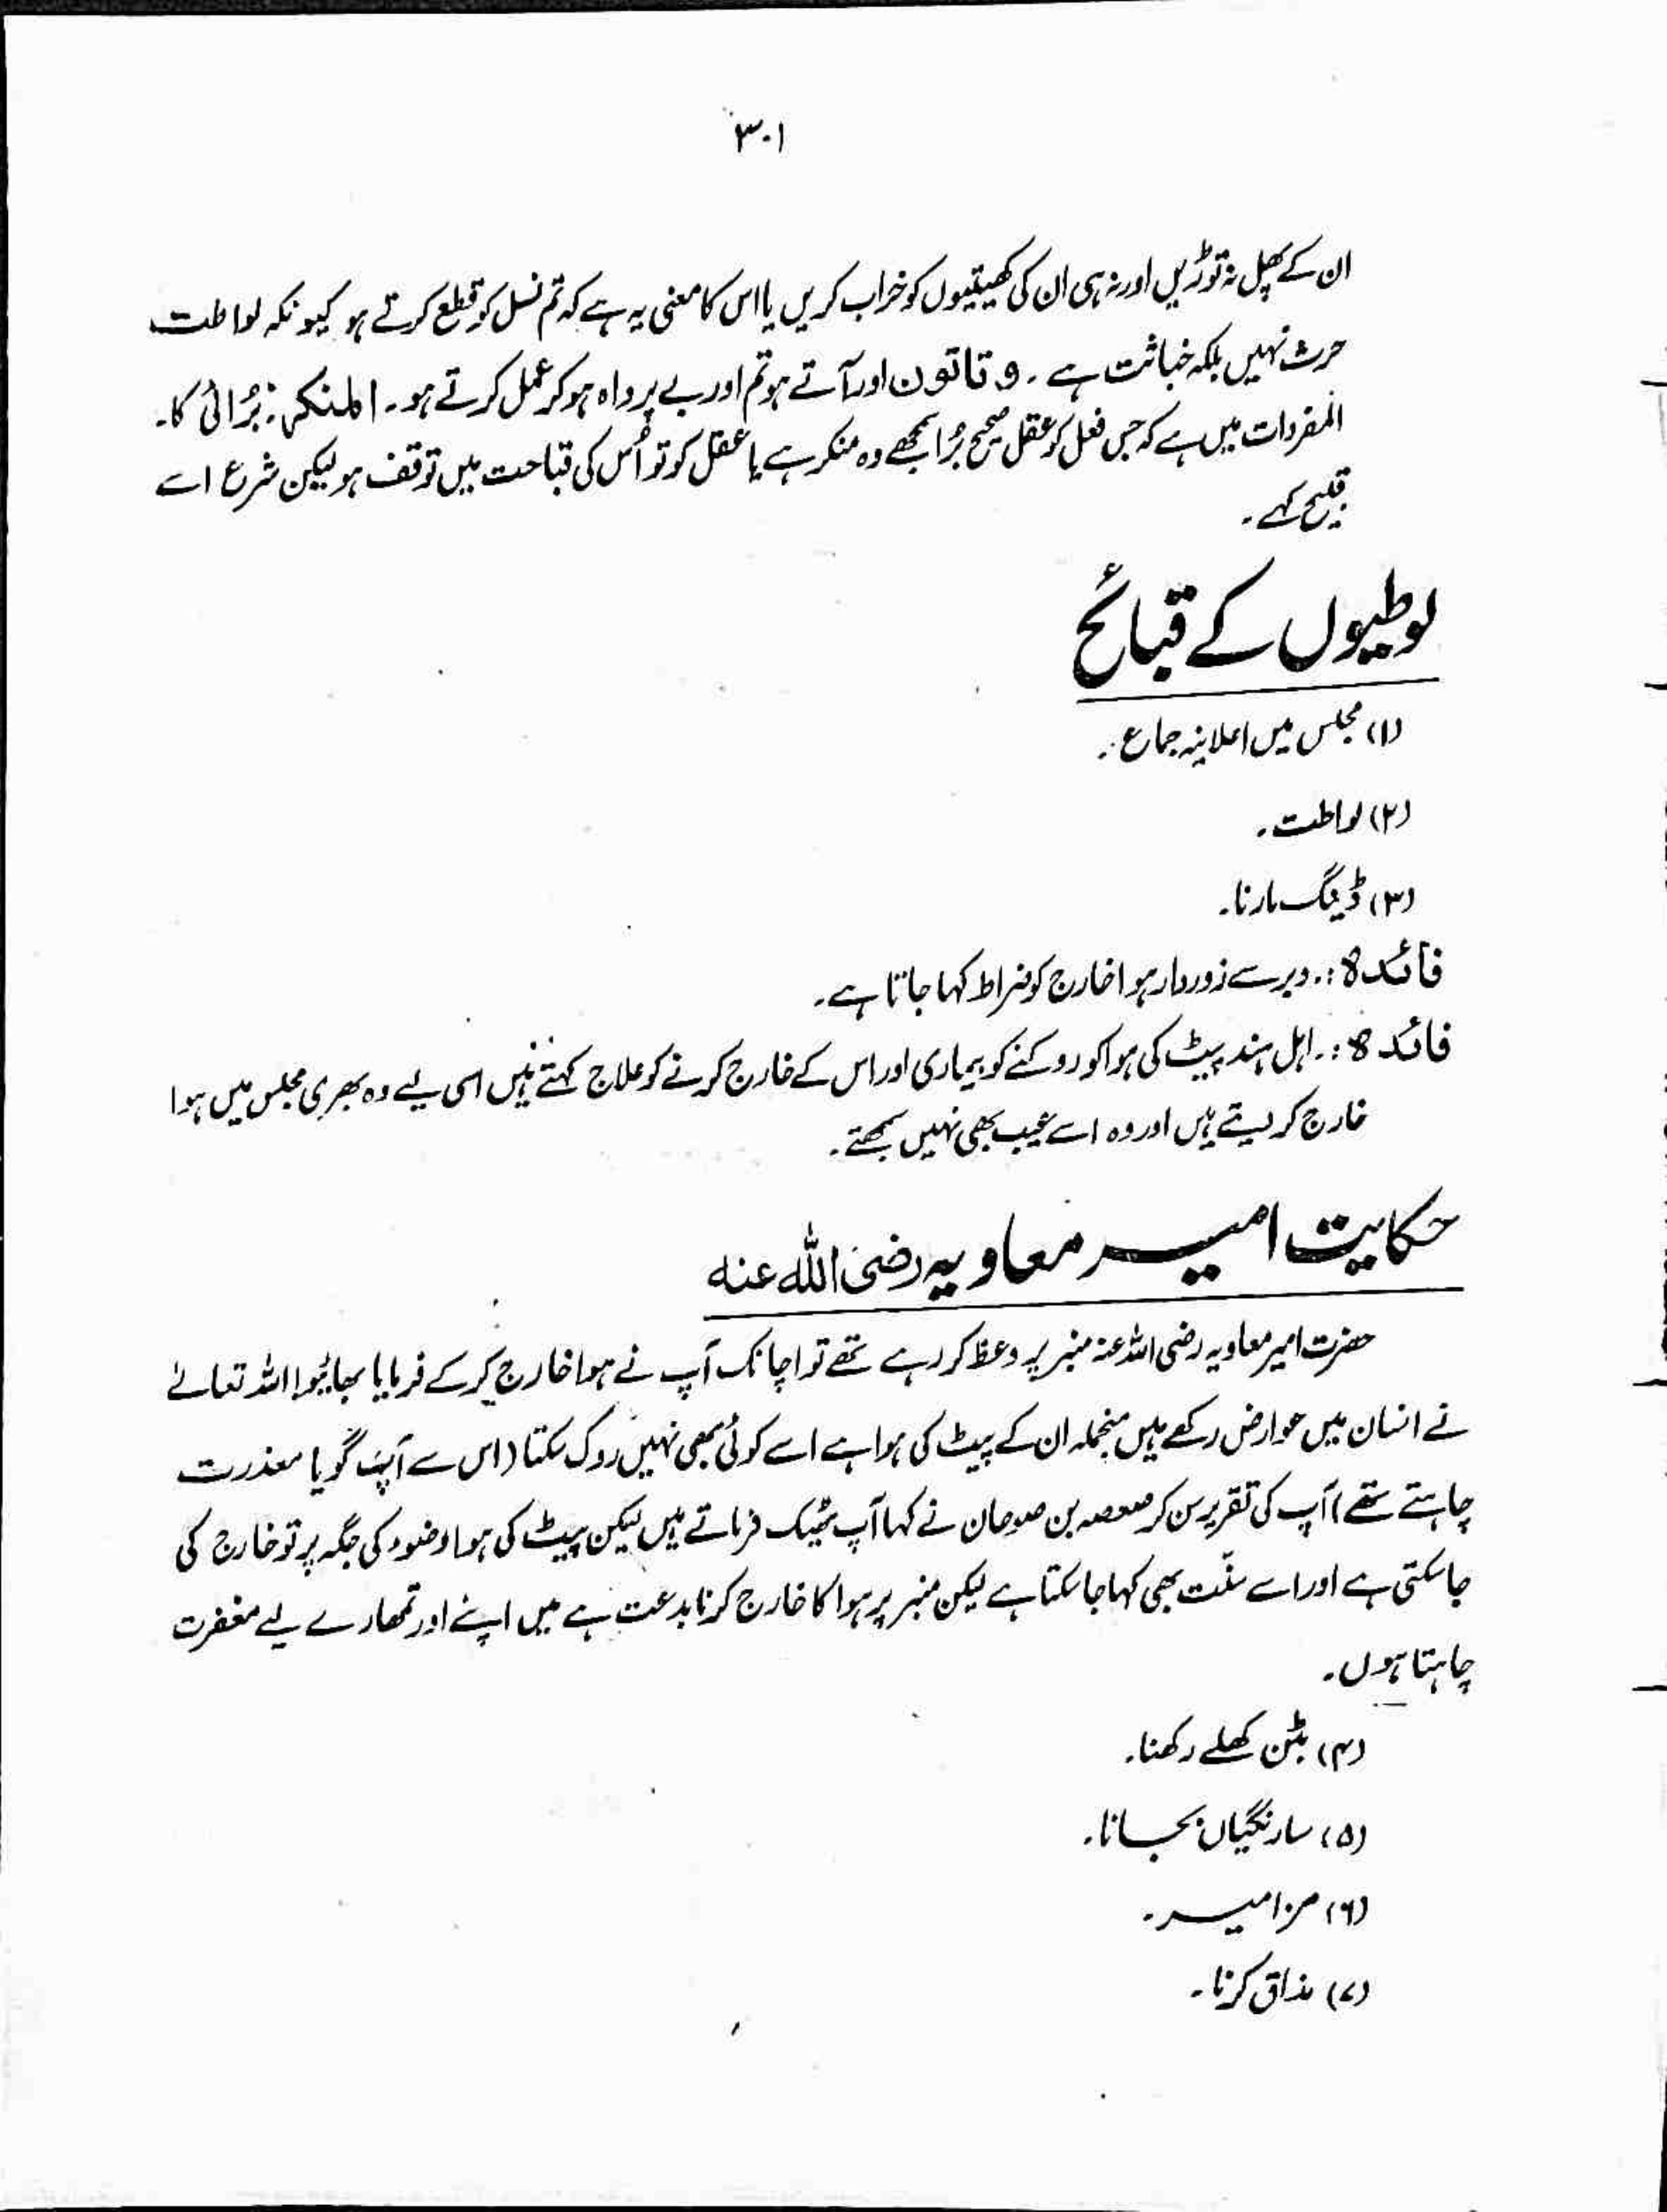 ۳۰۱
ان کے پھل نہ توڑیں اور نہ ہی ان کی کھیتیوں کو خراب کریں یا اس کا معنی یہ ہے کہ تم نسل کو قطع کرتے ہو کیونکہ لواطت
حرث نہیں بلکہ خباثت ہے ۔ وتاتون اور آتے ہو تم اور بے پرواہ ہو کر عمل کرتے ہو ۔ المنکر : بُرائی کا ۔
المفردات میں ہے کہ جس فعل کو عقل صحیح بُرا سمجھے وہ منکر ہے یا عقل کو تو اُس کی قباحت میں توقف ہو لیکن شرع اسے
قبیح کہے ۔
لوطیوں کے قبائح
(۱) مجلس میں اعلانیہ جماع ۔
(۲) لواطت ۔
(۳) ڈینگ مارنا ۔
فائدہ : ۔ دبر سے زوردار ہوا خارج کو ضراط کہا جاتا ہے ۔
فائدہ : ۔ اہل ہند پیٹ کی ہوا کو روکنے کو بیماری اور اس کے خارج کرنے کو علاج کہتے ہیں اسی لیے وہ بھری مجلس میں ہوا
خارج کر دیتے ہیں اور وہ اسے عیب بھی نہیں سمجھتے ۔
حکایت امیر معاویہ رضی اللہ عنہ
حضرت امیر معاویہ رضی اللہ عنہ منبر پر وعظ کر رہے تھے تو اچانک آپ نے ہوا خارج کر کے فرمایا بھائیو! اللہ تعالےٰ
نے انسان میں عوارض رکھے ہیں منجملہ ان کے پیٹ کی ہوا ہے اسے کوئی بھی نہیں روک سکتا (اس سے آپ گویا معذرت
چاہتے تھے) آپ کی تقریر سن کر صعصہ بن صوحان نے کہا آپ ٹھیک فرماتے ہیں لیکن پیٹ کی ہوا وضوء کی جگہ پر تو خارج کی
جا سکتی ہے اور اسے سنّت بھی کہا جا سکتا ہے لیکن منبر پر ہوا کا خارج کرنا بدعت ہے میں اپنے اور تمھارے لیے مغفرت
چاہتا ہوں ۔
(۴) بٹن کھلے رکھنا ۔
(۵) سارنگیاں بجانا ۔
(۶) مزامیر ۔
(۷) مذاق کرنا ۔